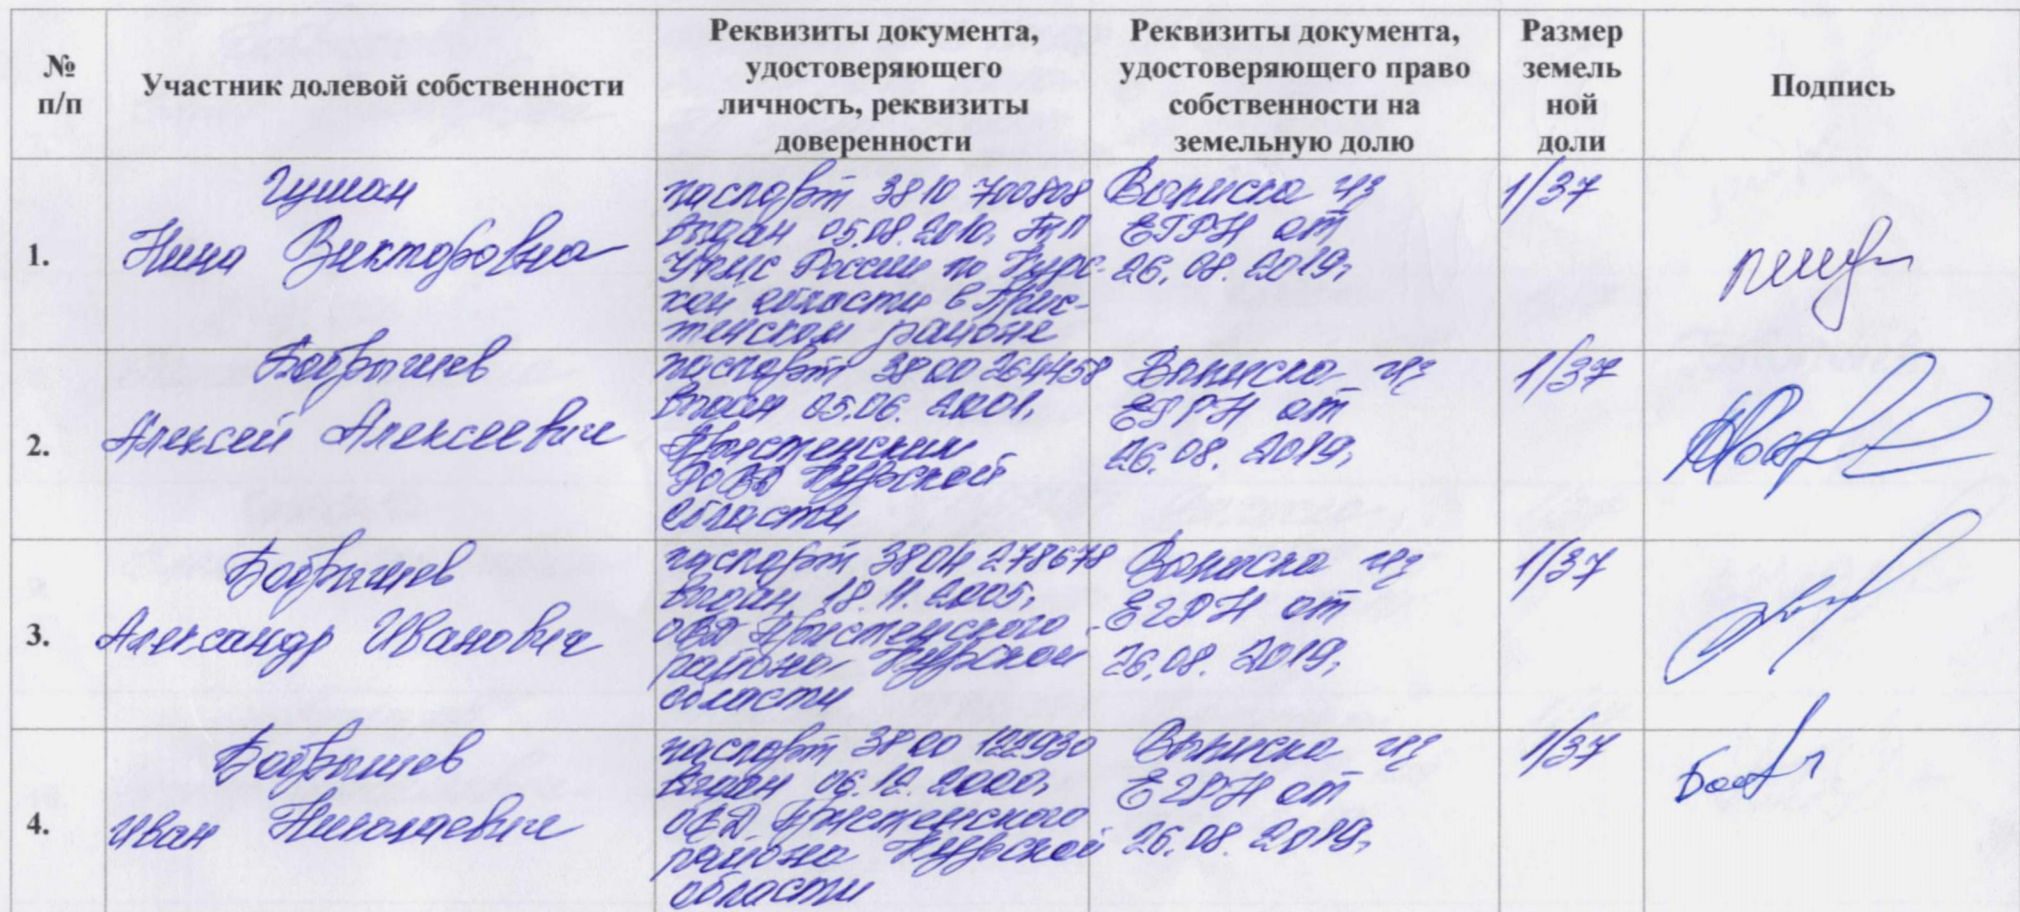 № п/п
Участник долевой собственности
Реквизиты документа,
удостоверяющего
личность, реквизиты
доверенности
Реквизиты документа,
удостоверяющего право
собственности на
земельную долю
Размер
земель
ной
доли
Подпись
1.
Гушан
Нина Викторовна
паспорт 3810 700808
выдан 05.08.2010, ТП
УФМС России по Курс-
кой области в Прис-
тенском районе
Выписка из
ЕГРН от
26.08.2019,
1/37
2.
Бобрышев
Алексей Алексеевич
паспорт 3800 264458
выдан 05.06.2001,
Пристенским
РОВД Курской
области
Выписка из
ЕГРН от
26.08.2019,
1/37
3.
Бобрышев
Александр Иванович
паспорт 3804 278678
выдан 18.11.2005,
ОВД Пристенского
района Курской
области
Выписка из
ЕГРН от
26.08.2019,
1/37
4.
Бобрышев
Иван Николаевич
паспорт 3800 122930
выдан 06.12.2000,
ОВД Пристенского
района Курской
области
Выписка из
ЕГРН от
26.08.2019,
1/37